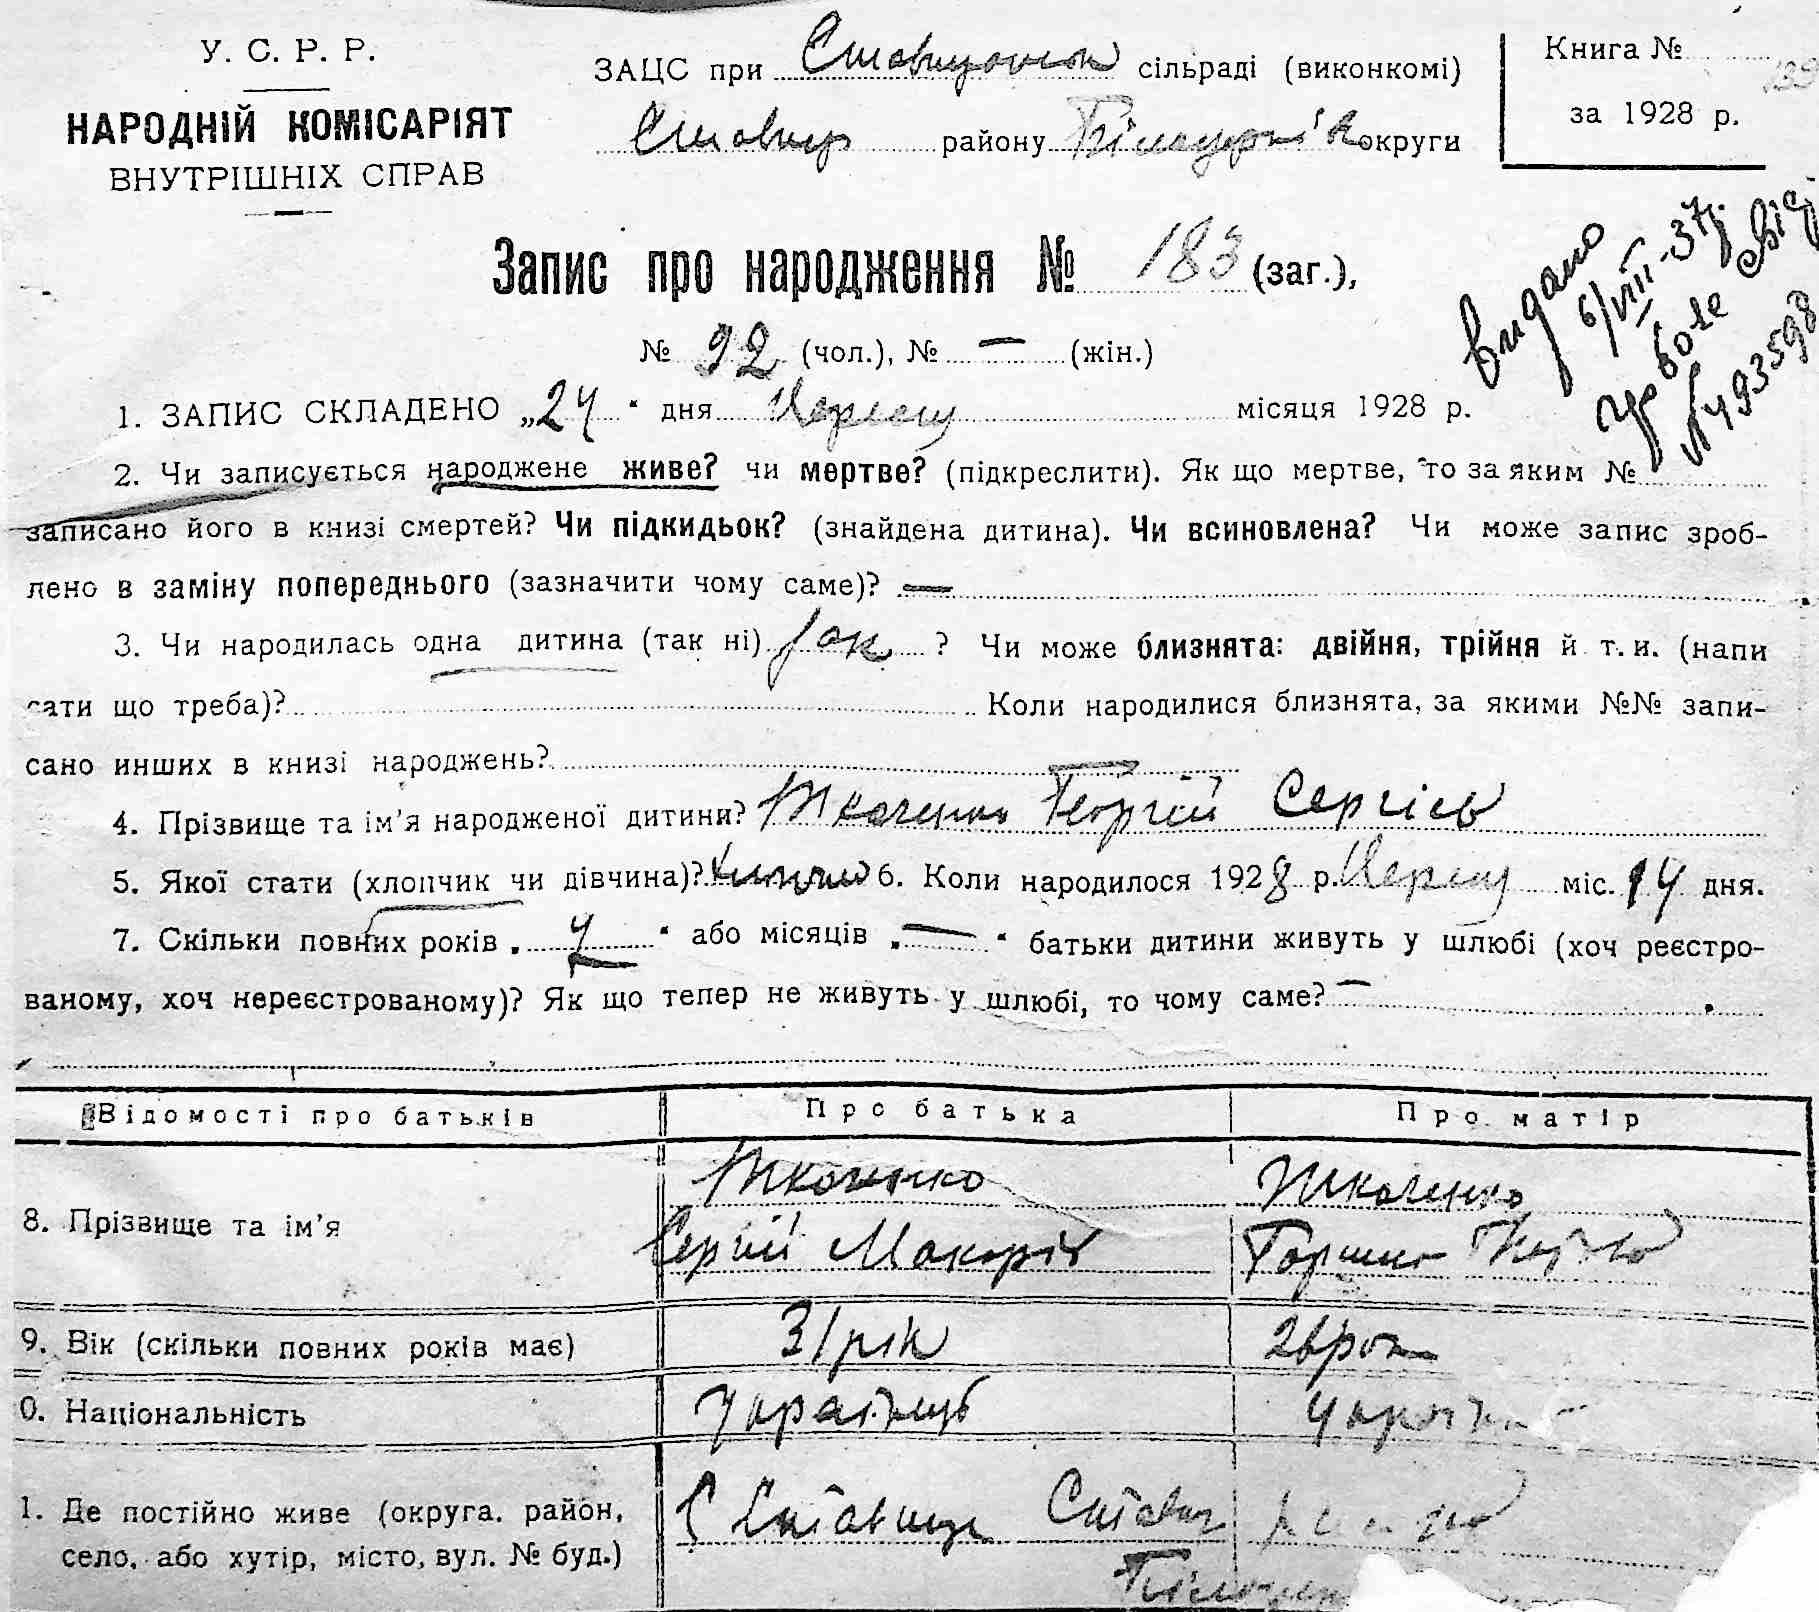 У. С. Р. Р.
НАРОДНІЙ КОМІСАРІЯТ
ВНУТРІШНІХ СПРАВ
ЗАЦС при Ставищанськ сільраді (виконкомі)
Ставищ району Білоцерків округи
Книга №
за 1928 р.
Видано
6/VIII-37р.
№ 4935598
Запис про народження № 183 (заг.),
№ 92 (чол.), № — (жін.)
1. ЗАПИС СКЛАДЕНО „24 “ дня Черввня місяця 1928 р.
2. Чи записується народжене живе? чи мертве? (підкреслити). Як що мертве, то за яким №
записано його в книзі смертей? Чи підкидьок? (знайдена дитина). Чи всиновлена? Чи може запис зроб-
лено в заміну попереднього (зазначити чому саме)? —
3. Чи народилась одна дитина (так ні) так ? Чи може близнята: двійня, трійня й т. и. (напи
сати що треба)? Коли народилися близнята, за якими №№ запи-
сано инших в книзі народжень?
4. Прізвище та ім’я народженої дитини? Ткаченко Георгій Сергіів
5. Якої стати (хлопчик чи дівчина)? хлопчик 6. Коли народилося 1928 р. міс. 14 дня.
7. Скільки повних років „ 4 “ або місяців „ — “ батьки дитини живуть у шлюбі (хоч реєстро-
ваному, хоч нереєстрованому)? Як що тепер не живуть у шлюбі, то чому саме? —
Відомості про батьків Про батька Про матір
8. Прізвище та ім’я Ткаченко Ткаченко
Сергій Макарів
9. Вік (скільки повних років має) 31 рік 26 рок
0. Національність Українець Українк
1. Де постійно живе (округа. район, С Ставище Ставищ
село, або хутір, місто, вул. № буд.) Білоцерк